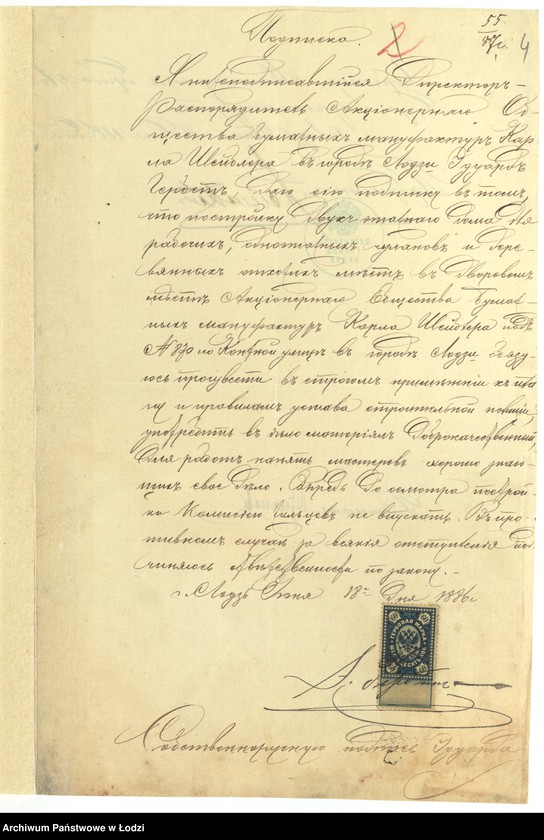 Подписка.
2
55
87г.
4
Я нижеподписавшійся Директоръ-
Распорядитель Акціонернаго Об-
щества бумажныхъ мануфактуръ Кар-
ла Шейблера въ городѣ Лодзи Эдуардъ
Гербстъ, даю сію подписку въ томъ,
что постройку двухъ этажнаго дома для
рабочихъ, одноэтажныхъ и дере-
вянныхъ отхожихъ мѣстъ, въ дворовомъ
мѣстѣ Акціонернаго Общества Бумаж-
ныхъ мануфактуръ Карла Шейблера подъ
№ по Конной улицѣ въ городѣ Лодзи обязу-
юсь произвести въ строгомъ примѣненіи къ пла-
ну и правиламъ устава строительной полиціи,
употребить въ дѣло матеріалъ доброкачественный,
для работъ нанять мастеровъ хорошо знаю-
щихъ свое дѣло. Впредь до осмотра построй-
ки Комисіею жильцовъ не впускать. Въ про-
тивномъ случаѣ за всякія отступленія под-
чиняюсь отвѣтственности по закону.-
г. Лодзь 18го Дня 1886г
60 60
ГЕРБОВАЯ МАРКА
60 60
Э. Гербстъ
Собственноручную подпись Эдуарда
Archiwum Państwowe w Łodzi